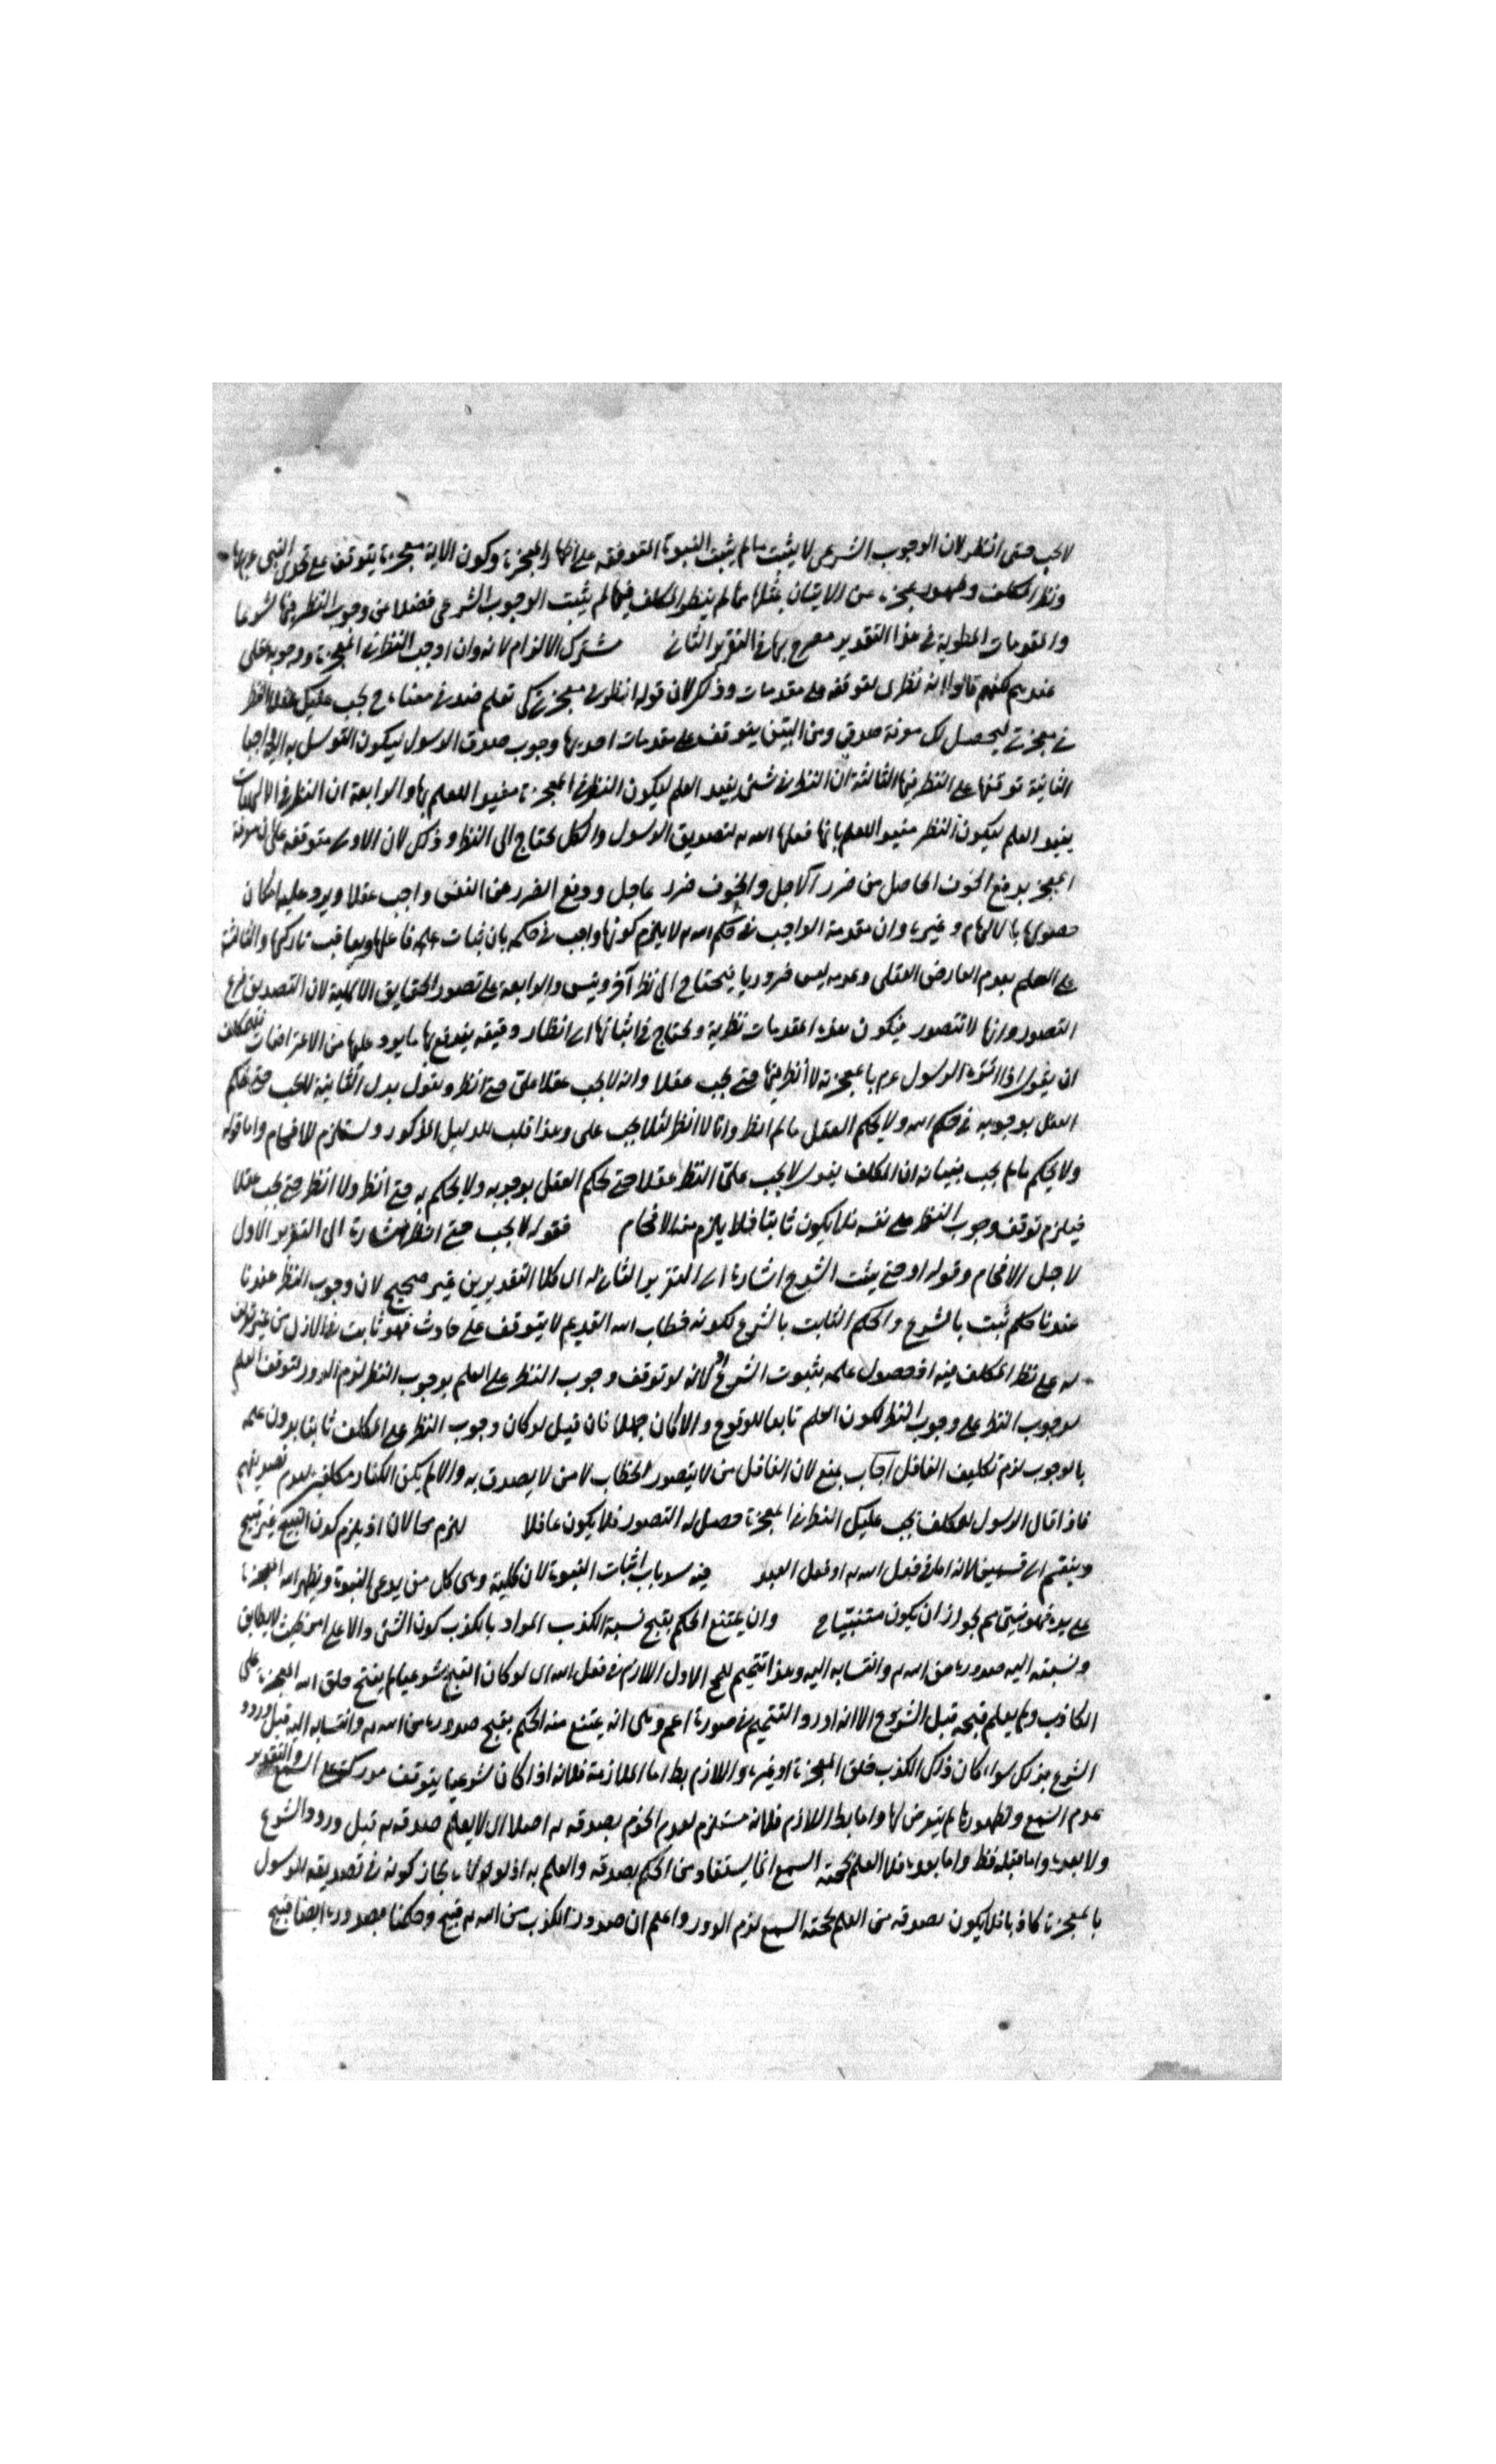 لا يجب حتى انظر لان الوجوب الشرعي لا يثبت ما لم يثبت النبوة المتوقفة على اظهار المعجزة وكون الآية معجزة يتوقف على تحدى النبي عم بها
ونظر المكلف وظهور عجزه عن الاتيان بمثلها فما لم ينظر المكلف فيها لم يثبت الوجوب الشرعي فضلا عن وجوب النظر فيها شرعا
والمقدمات المطوية في هذا التقدير مصرح بها في التقرير الثاني مشترك الالزام لانه وان اوجب النظر في المعجزة ووجوبه عقلي
عندهم لكنهم قالوا انه نظرى لتوقفه على مقدمات وذلك لان قوله انظر في معجزتي كى تعلم صدقى معناه يجب عليك عقلا النظر
في معجزتي ليحصل لك معرفة صدقي ومن البين يتوقف على مقدمات احديها وجوب صدق الرسول ليكون التوسل به اليه واجبا
الثانية توقفها على النظر فيها الثالثة ان النظر في شئ يفيد العلم ليكون النظر في المعجزة مفيدا للعلم بها والرابعة ان النظر في الالهيات
يفيد العلم ليكون النظر مفيدا للعلم بانها فعلها الله له لتصديق الرسول والكل يحتاج الى النظر وذلك لان الاولى متوقفة على ان معرفة
المعجز يدفع الخوف الحاصل من ضرر آلاجل والخوف ضرر عاجل ودفع الضرر عن النفس واجب عقلا ويرد عليها امكان
حصولها بالالهام وغيره وان مقدمة الواجب في حكم الله لا يلزم كونها واجب في حكمه بان يثاب عليه فاعلها ويعاقب تاركها والثالثة
على العلم بعدم العارض العقلى وعدمه ليس ضروريا فيحتاج الى نظر آخر وينس والرابعة على تصور الحقايق الالهية لان التصديق فرع
التصور وانها لا تتصور فيكون هذه المقدمات نظرية ويحتاج في اثباتها الى انظار دقيقة يندفع بها ما يورد عليها من الاعتراضات فللمكلف
ان يقول اذا الرسول عم بالمعجزة لا أنظر فيها حتى يجب عقلا وانه لا يجب عقلا على حتى انظر ويقول بدل الثانية لا يجب حتى يحكم
العقل بوجوبه في حكم الله ولا يحكم العقل ما لم انظر وانا لا انظر لئلا يجب على وهذا قلب للدليل المذكور ويستلزم للافحام واما قوله
ولا يحكم ما لم يجب فبيانه ان المكلف يقول لا يجب علىّ النظر عقلا حتى يحكم العقل بوجوبه ولا يحكم به حتى انظر ولا انظر حتى يجب عقلا
فيلزم توقف وجوب النظر على نفسه فلا يكون ثابتا فلا يلزم منه الافحام فقوله لا يجب حتى انظر اشارة الى التقرير الاول
لاجل الافحام وقوله او حتى يثبت الشرع اشارة الى التقرير الثاني له اى كلا التقديرين غير صحيح لان وجوب النظر عندنا
عندنا حكم ثبت بالشرع والحكم الثابت بالشرع لكونه خطاب الله القديم لا يتوقف على حادث فهو ثابت في الازل من غير توقف
له على نظر المكلف فيه او حصول علمه بثبوت الشرع لانه لو توقف وجوب النظر على العلم بوجوب النظر لزم الدور لتوقف العلم
بوجوب النظر على وجوب النظر لكون العلم تابعا للوقوع والا لكان جهلا فان قيل لو كان وجوب النظر على المكلف ثابتا بدون علمه
بالوجوب لزم تكليف الغافل اجاب بمنع لان الغافل من لا يتصور الخطاب لا من لا يصدق به والا لم يكن الكفار مكلفين لعدم تصديقهم
فاذا قال الرسول للمكلف يجب عليك النظر في المعجزة حصل له التصور فلا يكون غافلا للزم محالان اذ يلزم كون القبيح غير قبيح
وينقسم الى قسمين لانه اما في فعل الله له او فعل العبد فيه سد باب اثبات النبوة لان كلية وهى كل من يدعى النبوة ويظهر الله المعجزة
على يده فهو نبي لم يجز اذ ان يكون متنبيا ح وان يمتنع الحكم بقبح نسبة الكذب المراد بالكذب كون الشئ والاعلام بحيث لا يطابق
ونسبته اليه صدوره من الله له وانتسابه اليه وهذا تتميم للمح الاول اللازم في فعل الله اى لو كان القبح شرعيا لم يقبح خلق الله المعجزة على
الكاذب ولم يعلم قبحه قبل الشرع الا انه اورد التتميم في صورة اعم وهى انه يمتنع منه الحكم بقبح صدوره من الله له وانتسابه اليه قبل ورود
الشرع بذلك سواء كان ذلك الكذب خلق المعجزة او غيره واللازم بط اما الملازمة فلانه اذا كان شرعيا يتوقف مدركه على السمع والتقدير
عدم السمع ولظهورها لم يتعرض لها واما بط اللازم فلانه مستلزم لعدم الجزم بصدقه له اصلا اى لا يعلم صدقه له قبل ورود الشرع
ولا بعده واما قبله فظ واما بعده فلا العلم بحجة السمع انما يستفاد من الحكم بصدقه والعلم به اذ لولاه لجاز كونه في تصديقه للرسول
بالمعجزة كاذبا فلا يكون بصدقه من العلم بحجة السمع لزم الدور واعلم ان صدور الكذب من الله له قبيح وحكمنا بصدوره ايضا قبيح